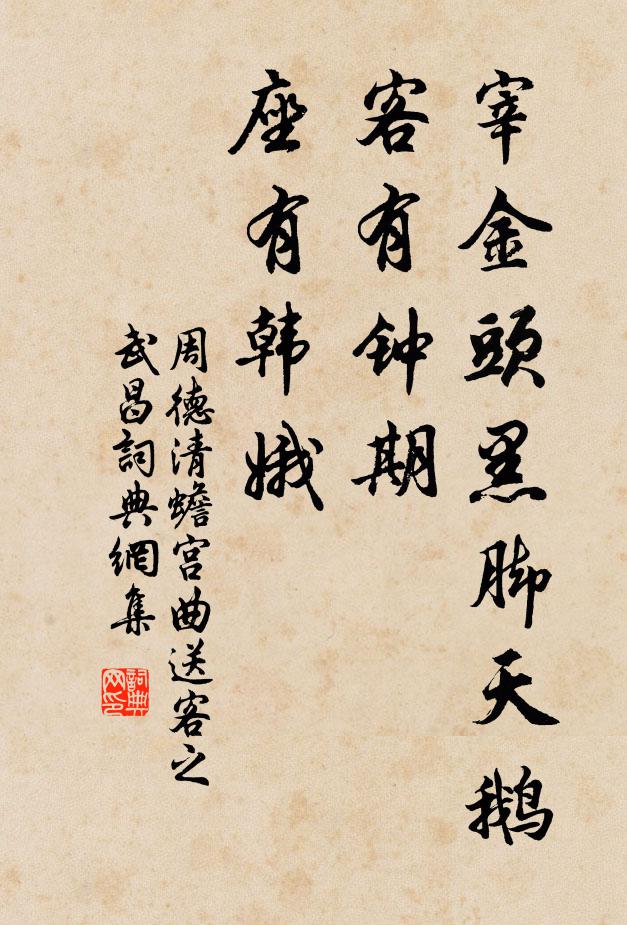 宰金頭黑脚天鹅
客有钟期
座有韩娥
周德清蟾宫曲送客之
武昌詞典網集
詞典网印